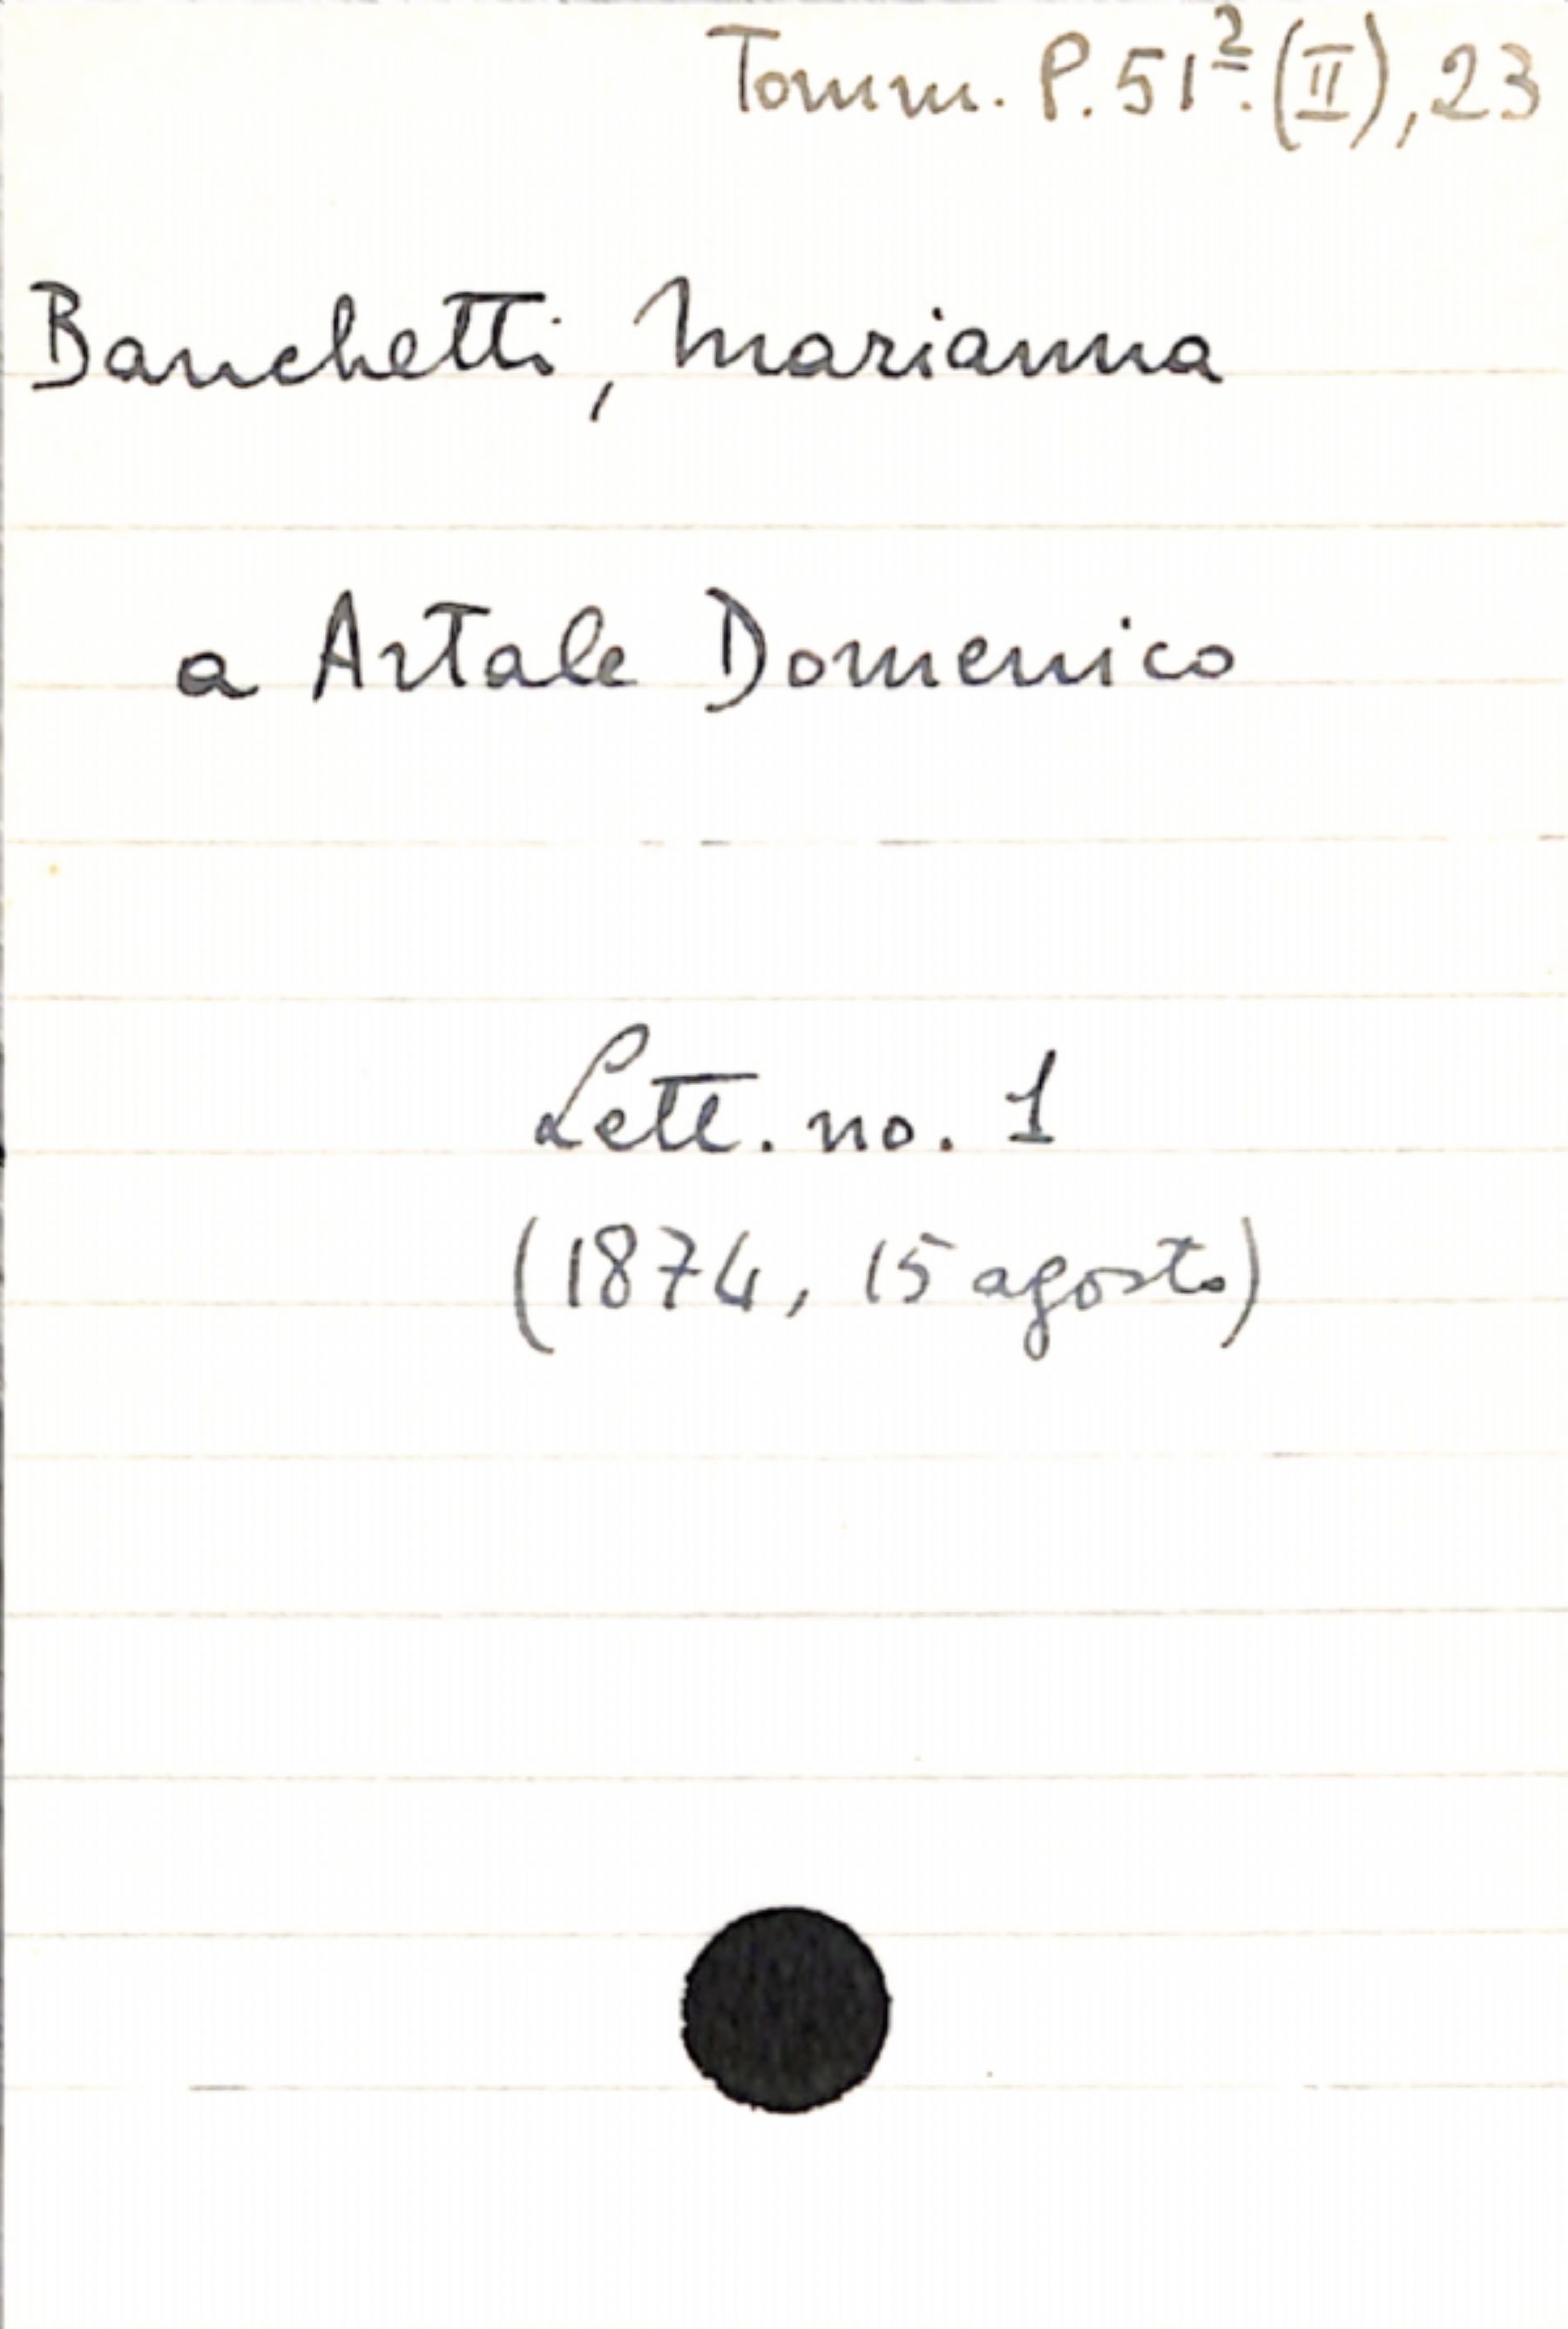 Tomm. P. 51². (II), 23
Banchetti, Marianna
a Artale Domenico
Lett. no. 1
(1874, 15 agosto)